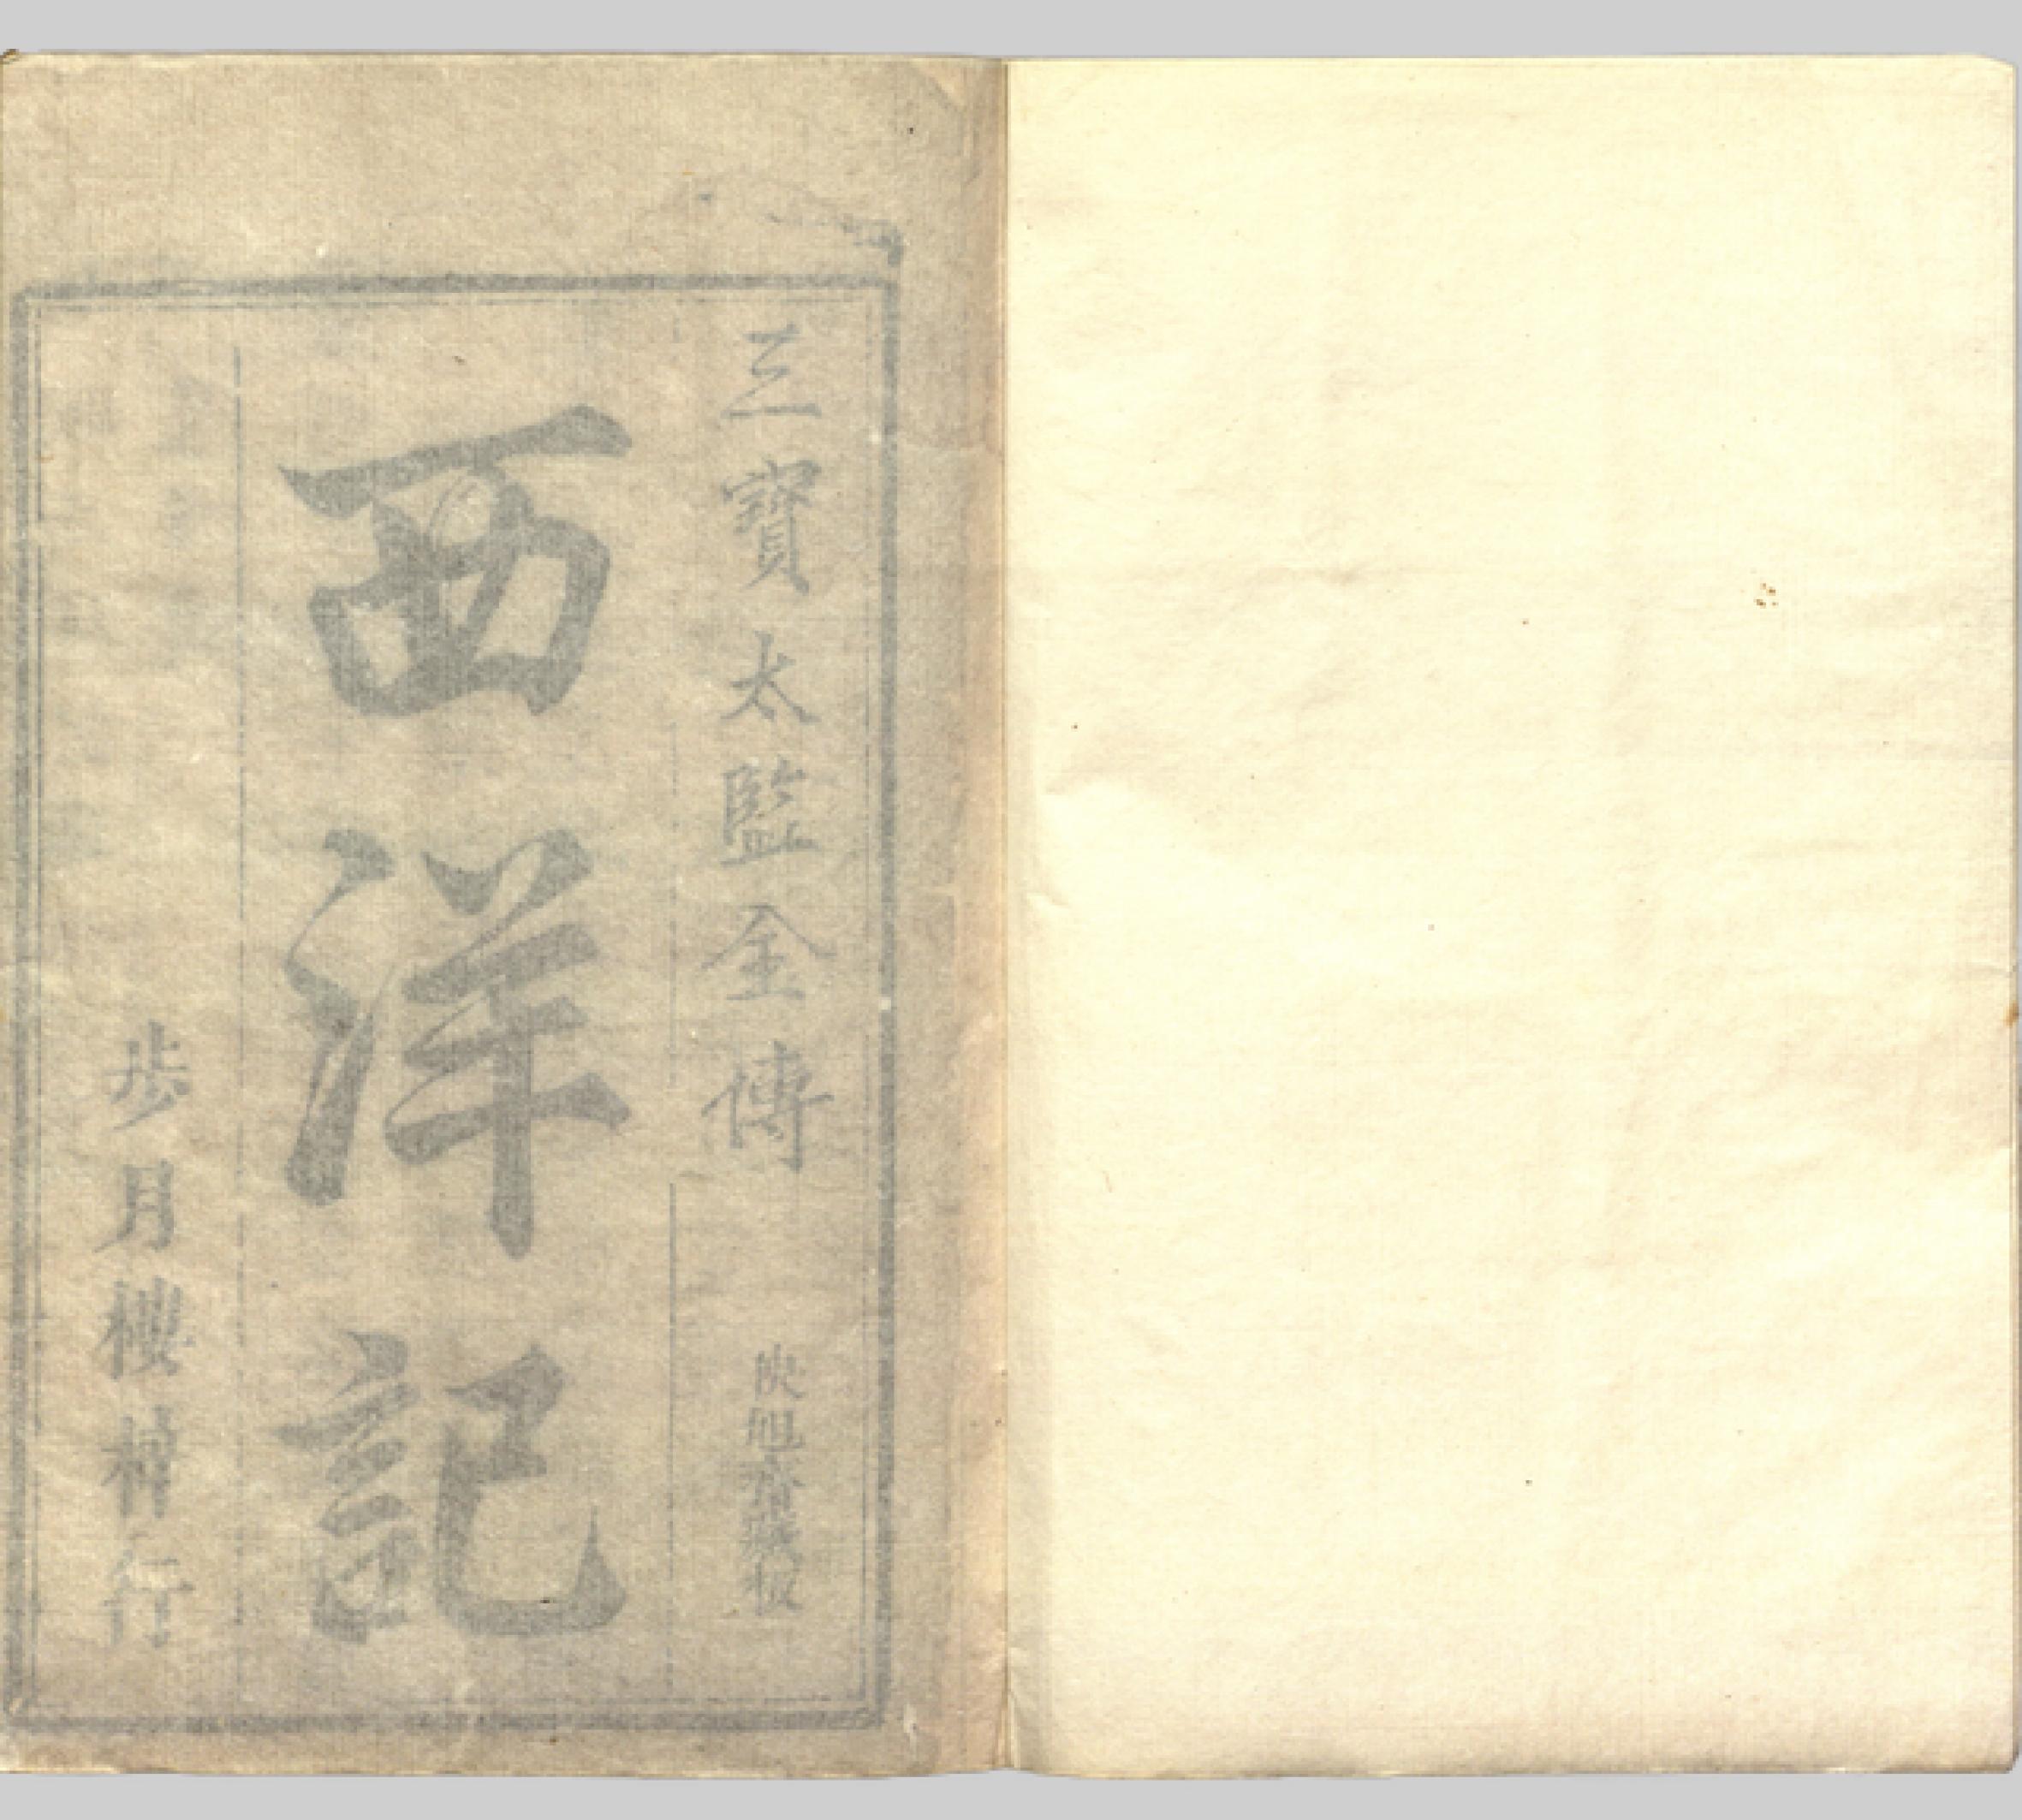 三寶太監全傳
映旭齋藏板
西洋記
步月樓梓行